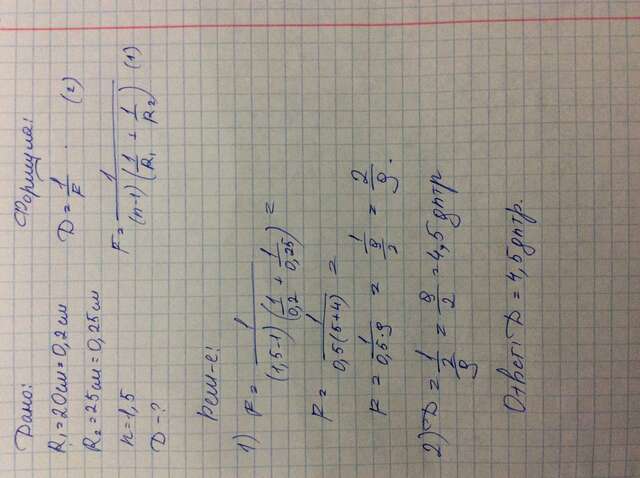 Дано:
R₁=20см=0,2см
R₂=25см=0,25см
n=1,5
D-?
Формула:
D = 1/F . (2)
F = 1/((n-1)(1/R₁ + 1/R₂)) (1)
Реш-е:
1) F = 1/((1,5-1)(1/0,2 + 1/0,25)) =
F = 1/(0,5(5+4)) =
F = 1/(0,5·9) = 1/(9/2) = 2/9.
2) D = 1/(2/9) = 9/2 = 4,5 дптр
Ответ: D = 4,5 дптр.